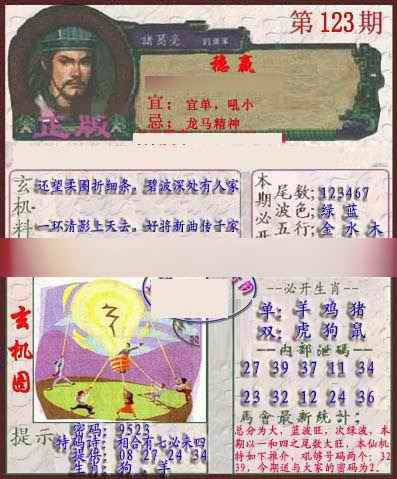 第123期
諸葛亮 劉備軍
稳赢
宜：宜单，吼小
忌：龙马精神
正版
玄机料
还望柔围折细条。碧波深处有人家
一环清影上天去。好将新曲传千家
本期必开
尾数：123467
波色：绿 蓝
五行：金 水 木
玄机图
必开生肖
单：羊 鸡 猪
双：虎 狗 鼠
内部泄码
27 39 37 11 34
23 32 12 24 36
馬會最新統計：
总分为大，蓝波旺，次绿波，本
期以一和四之尾数大旺，本仙机
特如下推介，吼够号码两个：32
39，今期送与大家的密码为2。
提示
密码：9523
特码诗：相合有七必来四
提倍：08 27 24 34
生肖：狗、羊